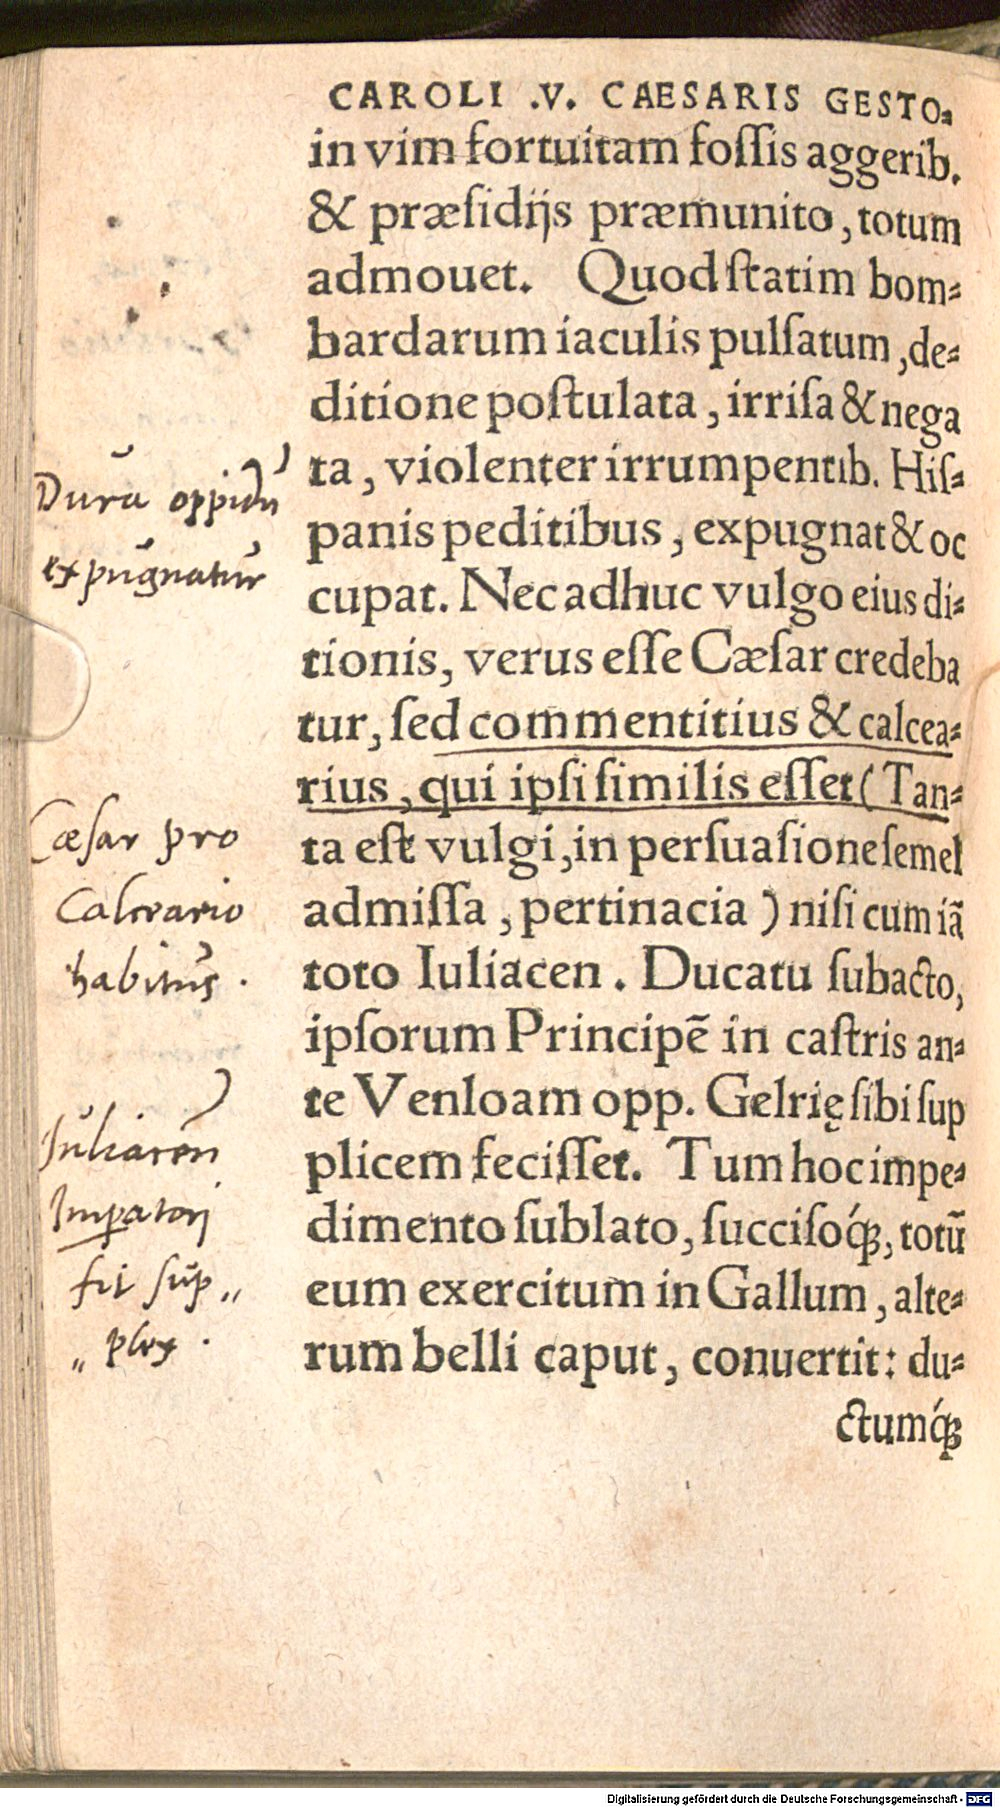 CAROLI .V. CAESARIS GESTO⸗
in vim fortuitam foſſis aggerib.
& præſidijs præmunito, totum
admouet. Quod ſtatim bom⸗
bardarum iaculis pulſatum, de⸗
ditione poſtulata, irriſa & nega
ta, violenter irrumpentib. Hiſ⸗
panis peditibus, expugnat & oc
cupat. Nec adhuc vulgo eius di⸗
tionis, verus eſſe Cæſar credeba
tur, ſed commentitius & calcea⸗
rius, qui ipſi ſimilis eſſet (Tan⸗
ta eſt vulgi, in perſuaſione ſemel
admiſſa, pertinacia) niſi cum iã
toto Iuliacen. Ducatu ſubacto,
ipſorum Principẽ in caſtris an⸗
te Venloam opp. Gelrię ſibi ſup
plicem feciſſet. Tum hoc impe⸗
dimento ſublato, ſucciſoq́;, totũ
eum exercitum in Gallum, alte⸗
rum belli caput, conuertit: du⸗
ctumq́;
Dura oppidū
expugnatur
Cæſar pro
Calceario
habitus.
Juliacen
Imperatori
fit ſup„
„plex.
Digitalisierung gefördert durch die Deutsche Forschungsgemeinschaft - DFG